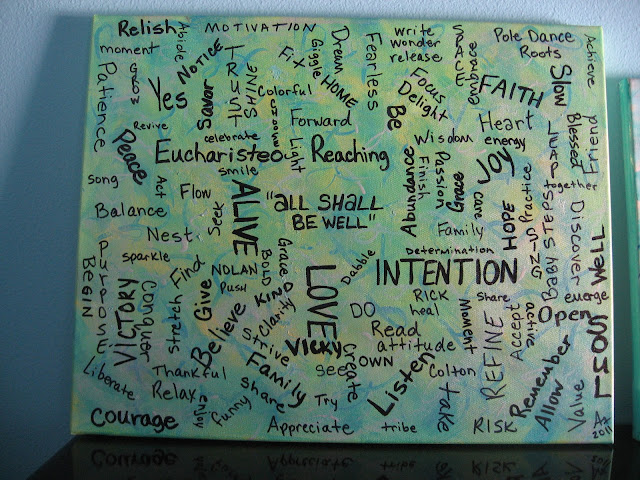 Relish
Abide
MOTIVATION
Dream
Fearless
write
wonder
release
embrace
Pole Dance
Roots
Achieve
moment
NOTICE
TRUST
Fix
Giggle
HOME
Focus
Delight
FAITH
Slow
Patience
Yes
Savor
SHINE
Colorful
Be
Heart
energy
Blessed
Friend
Revive
celebrate
Light
Forward
Wisdom
Peace
Eucharisteo
Reaching
Joy
smile
Abundance
Finish
Passion
Grace
care
Practice
together
song
Act
Flow
ALIVE
"ALL SHALL
BE WELL"
Balance
Seek
Family
HOPE
BABY STEPS
Discover
Nest
Determination
RISING
WELL
PURPOSE
BEGIN
sparkle
Find
NOLAN
PUSH
BOLD
Grace
KIND
LOVE
Dabble
INTENTION
emerge
VICTORY
Conquer
stretch
Give
Believe
Clarity
DO
RICK
heal
Moment
share
REFINE
Accept
active
Open
LOST
Strive
VICKY
Read
attitude
Liberate
Thankful
Family
see
Create
OWN
Listen
Colton
Remember
Relax
share
Try
take
Allow
Value
Courage
enjoy
funny
Appreciate
tribe
RISK
2011